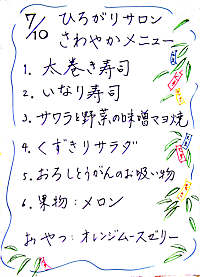 7/10 ひろがりサロン
さわやかメニュー
1. 太巻き寿司
2. いなり寿司
3. サワラと野菜の味噌マヨ焼
4. くずきりサラダ
5. おろしとうがんのお吸い物
6. 果物:メロン
おやつ:オレンジムースゼリー